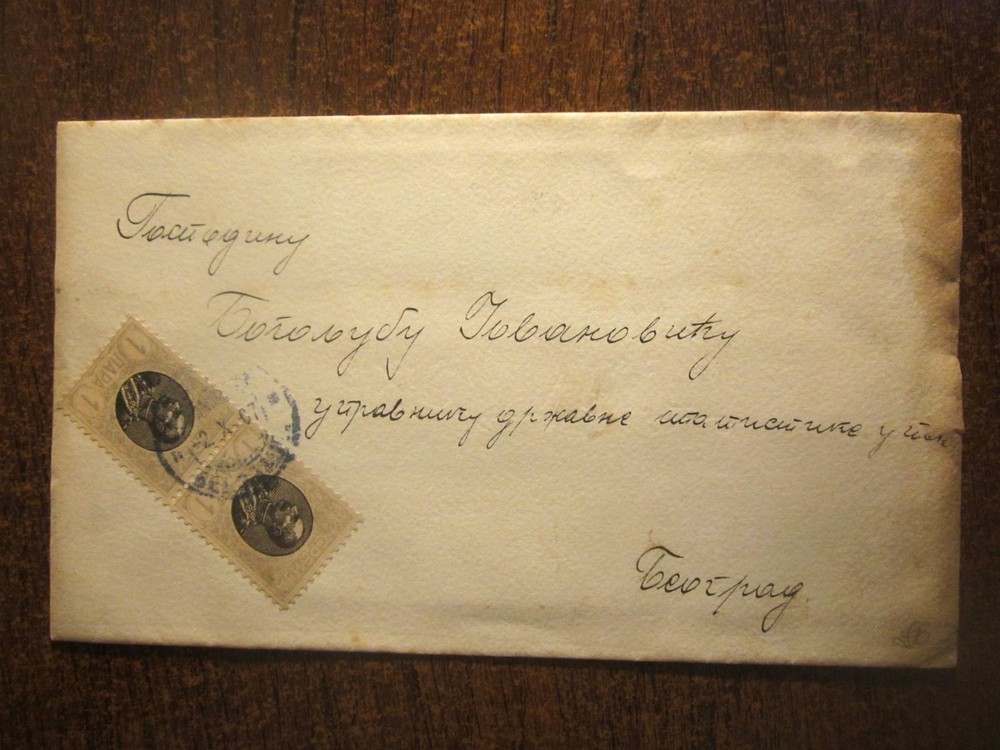 Господину
Боголубу Јовановићу
управнику државне статистике у пен
Београд.
1 ПАРА 1